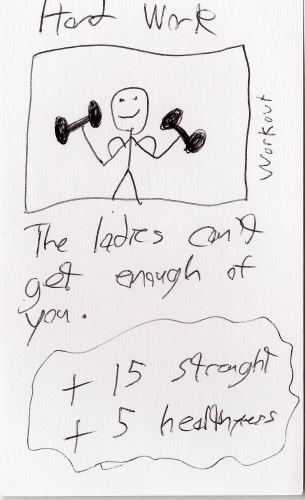 Hard Work
Workout
The ladies can't
get enough of
you.
+ 15 strenght
+ 5 healthyness